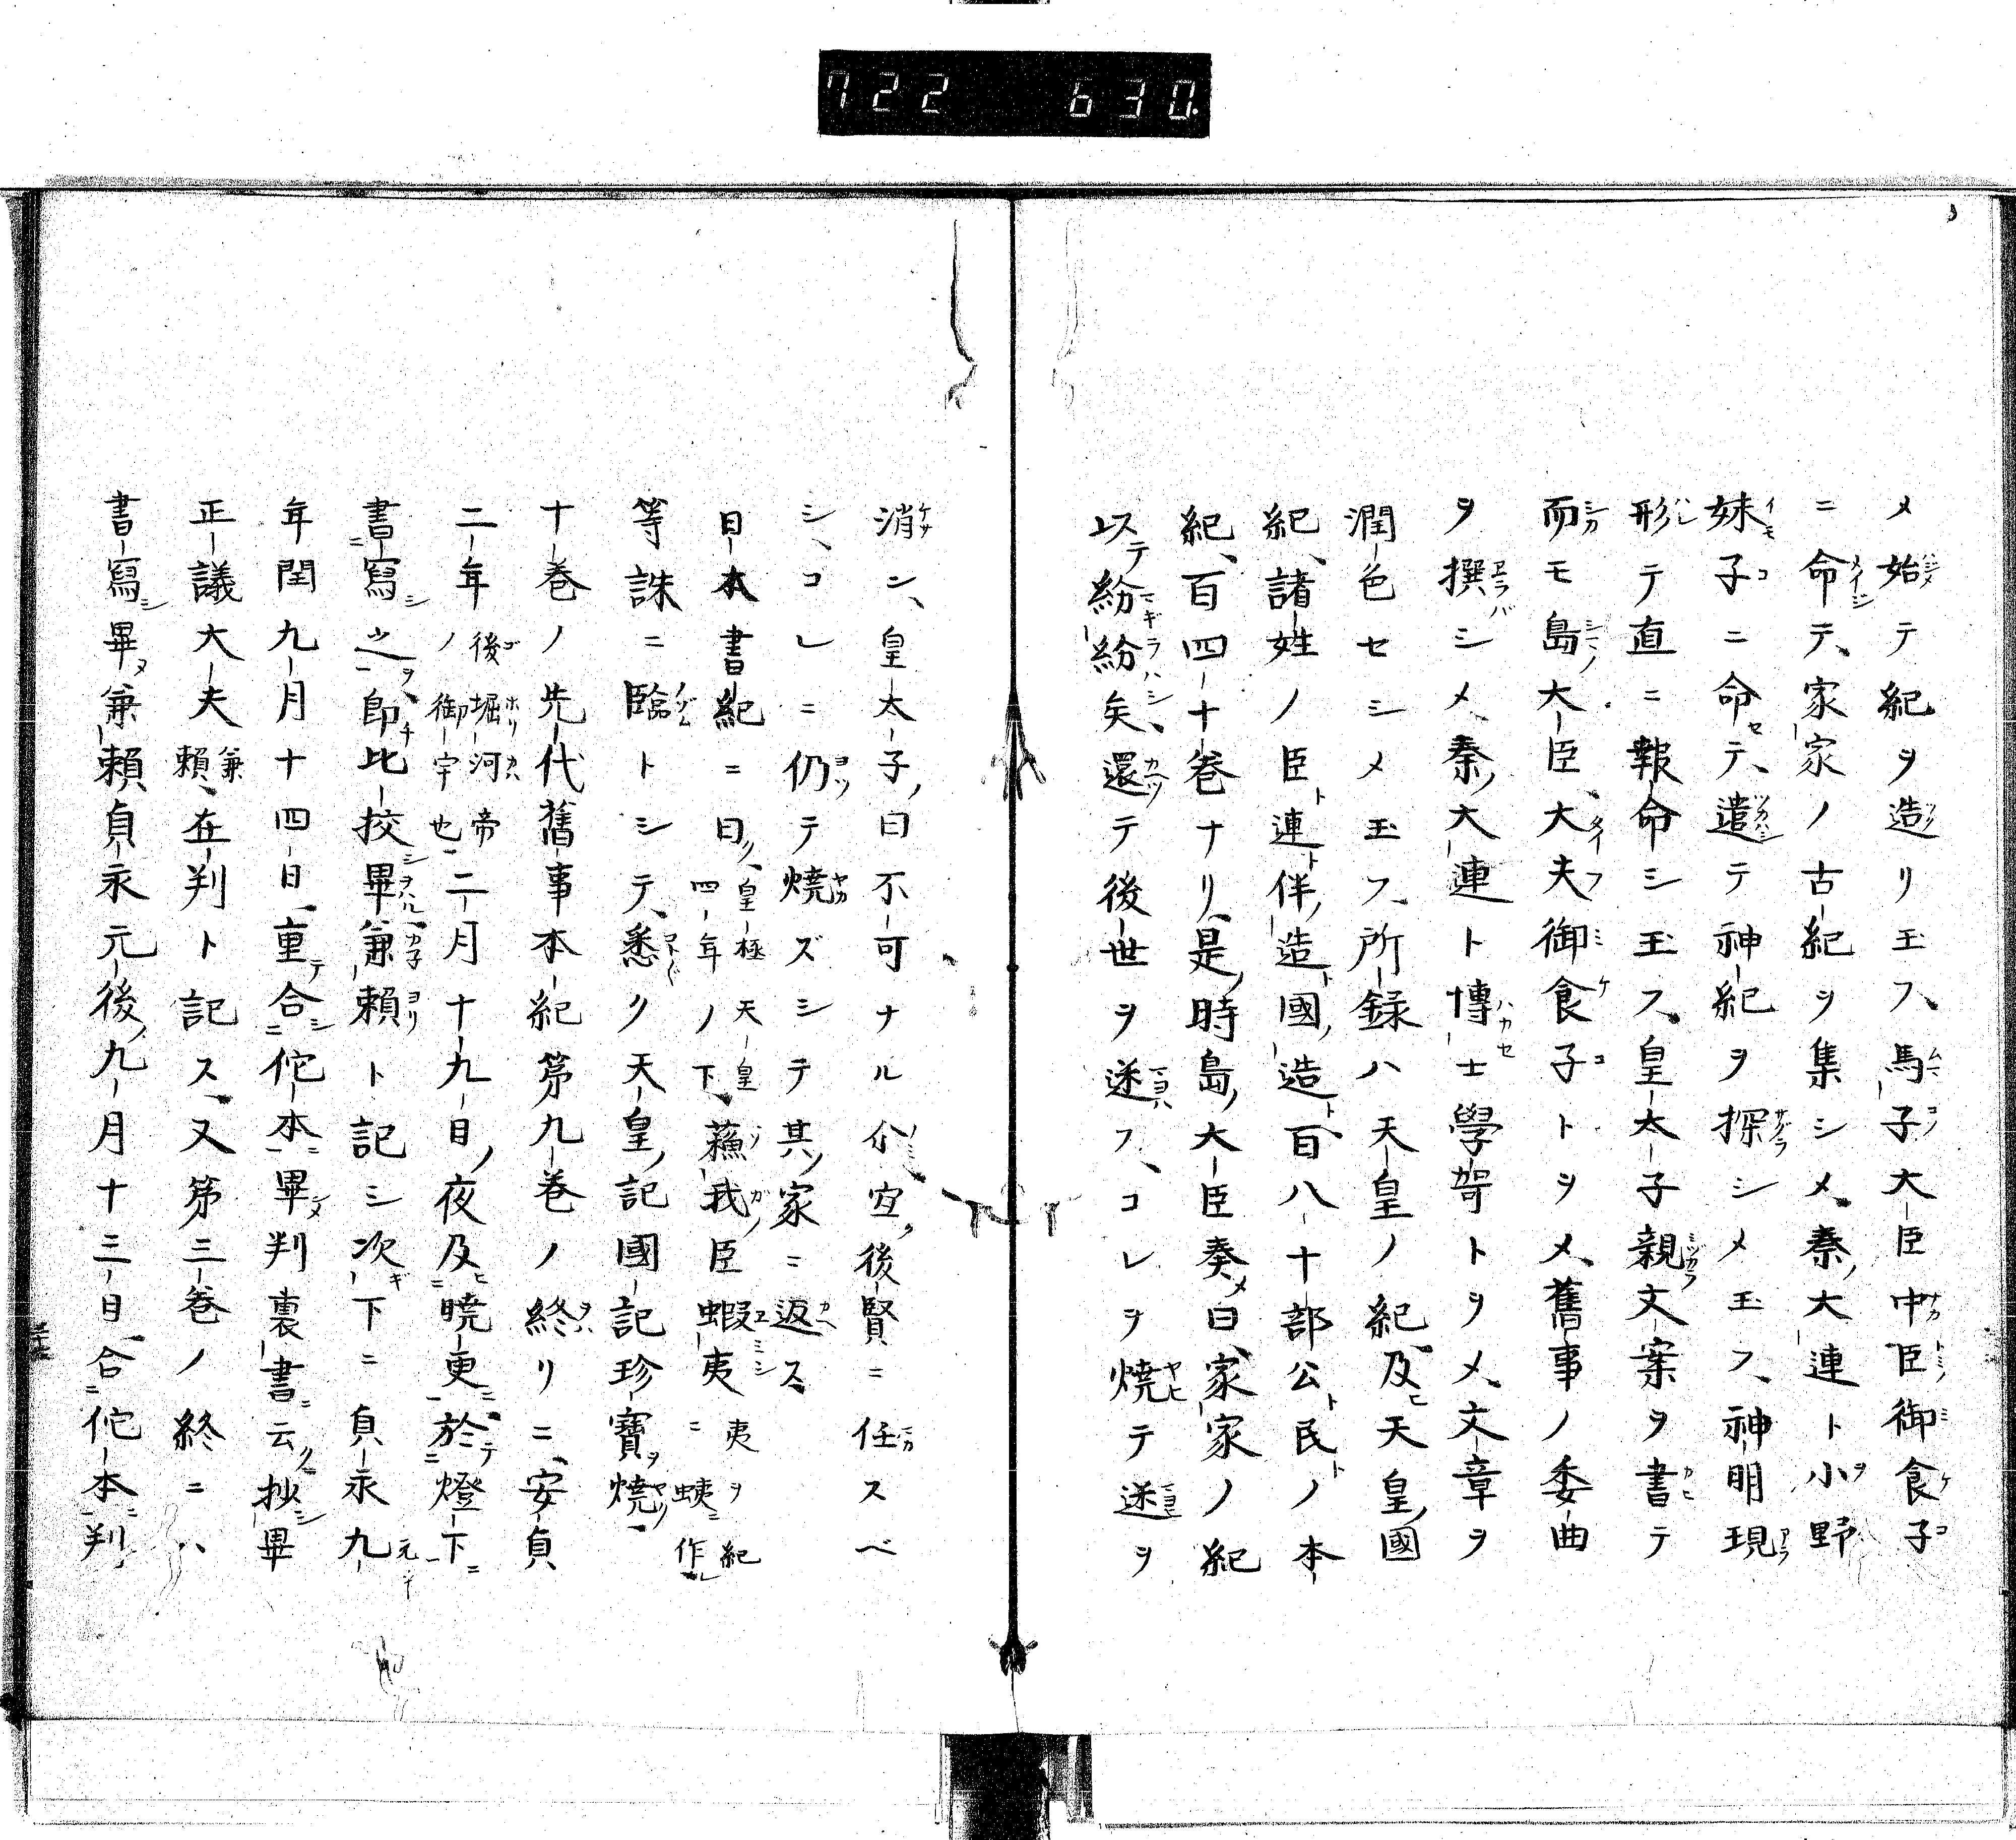 722 630.
メ始テ紀ヲ造リ玉フ、馬子大臣中臣御食子
ニ命テ、家家ノ古紀ヲ集シメ、秦大連ト小野
妹子ニ命テ、遣テ神紀ヲ探シメ玉フ、神明現
形テ直ニ報命シ玉ス、皇太子親文案ヲ書テ
而モ島大臣、大夫御食子トヲメ、舊事ノ委曲
ヲ撰シメ、秦大連ト博士學哿トヲメ、文章ヲ
潤色セシメ玉フ、所録ハ天皇ノ紀、及天皇國
紀、諸姓ノ臣連伴造國造百八十部公民ノ本
紀、百四十巻ナリ、是時島大臣奏曰、家家ノ紀
以テ紛紛矣還テ後世ヲ迷フ、コレヲ焼テ迷ヲ
消ン、皇太子曰不可ナル尒宜後賢ニ任スベ
シ、コレニ仍テ焼ズシテ其家ニ返ス、
日本書紀ニ曰、皇極天皇四年ノ下、蘓我臣蝦夷夷ヲ紀ニ蛦ニ作
等誅ニ臨トシテ、悉ク天皇記國記珍寶焼、
十巻ノ先代舊事本紀第九巻ノ終リニ、安貞
二年後堀河帝ノ御宇也二月十九日夜及暁更、於燈下
書寫之、即比挍畢兼頼ト記シ次下ニ貞永九
年閏九月十四日、重合佗本畢判裏書云抄畢
正議大夫兼頼、在判ト記ス、又第三巻ノ終ニハ
書寫畢兼頼貞永元後九月十三日、合佗本判